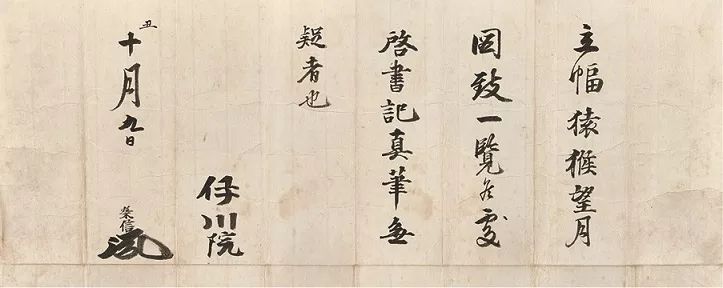 立幅猿猴望月
図致一覧候処
啓書記真筆無
疑者也
伊川院
丑
十月九日
榮信